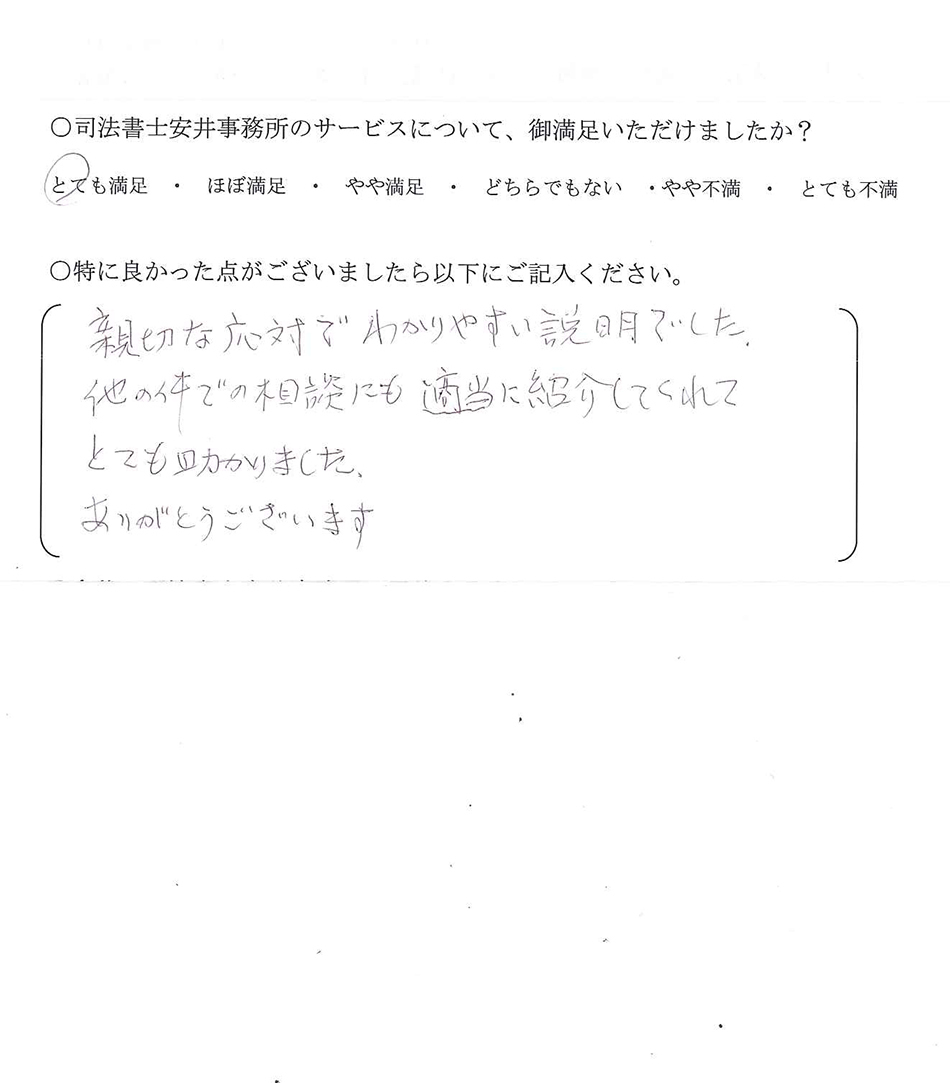 〇司法書士安井事務所のサービスについて、御満足いただけましたか？
とても満足　・　ほぼ満足　・　やや満足　・　どちらでもない　・やや不満　・　とても不満
〇特に良かった点がございましたら以下にご記入ください。
親切な応対でわかりやすい説明でした。
他の件での相談にも適当に紹介してくれて
とても助かりました。
ありがとうございます